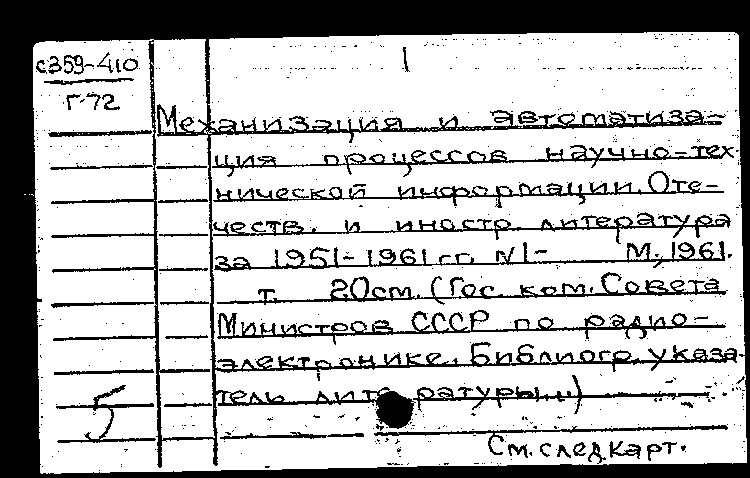 с359-410
1
Г-72
Механизация и автоматиза-
ция процессов научно-тех
нической информации. Оте-
честв. и иностр. литература
за 1951-1961 гг. N1- М., 1961.
т. 20см. (Гос. ком. Совета
Министров СССР по радио-
электронике. Библиогр. указа-
тель литературы...)
5
См. след карт.